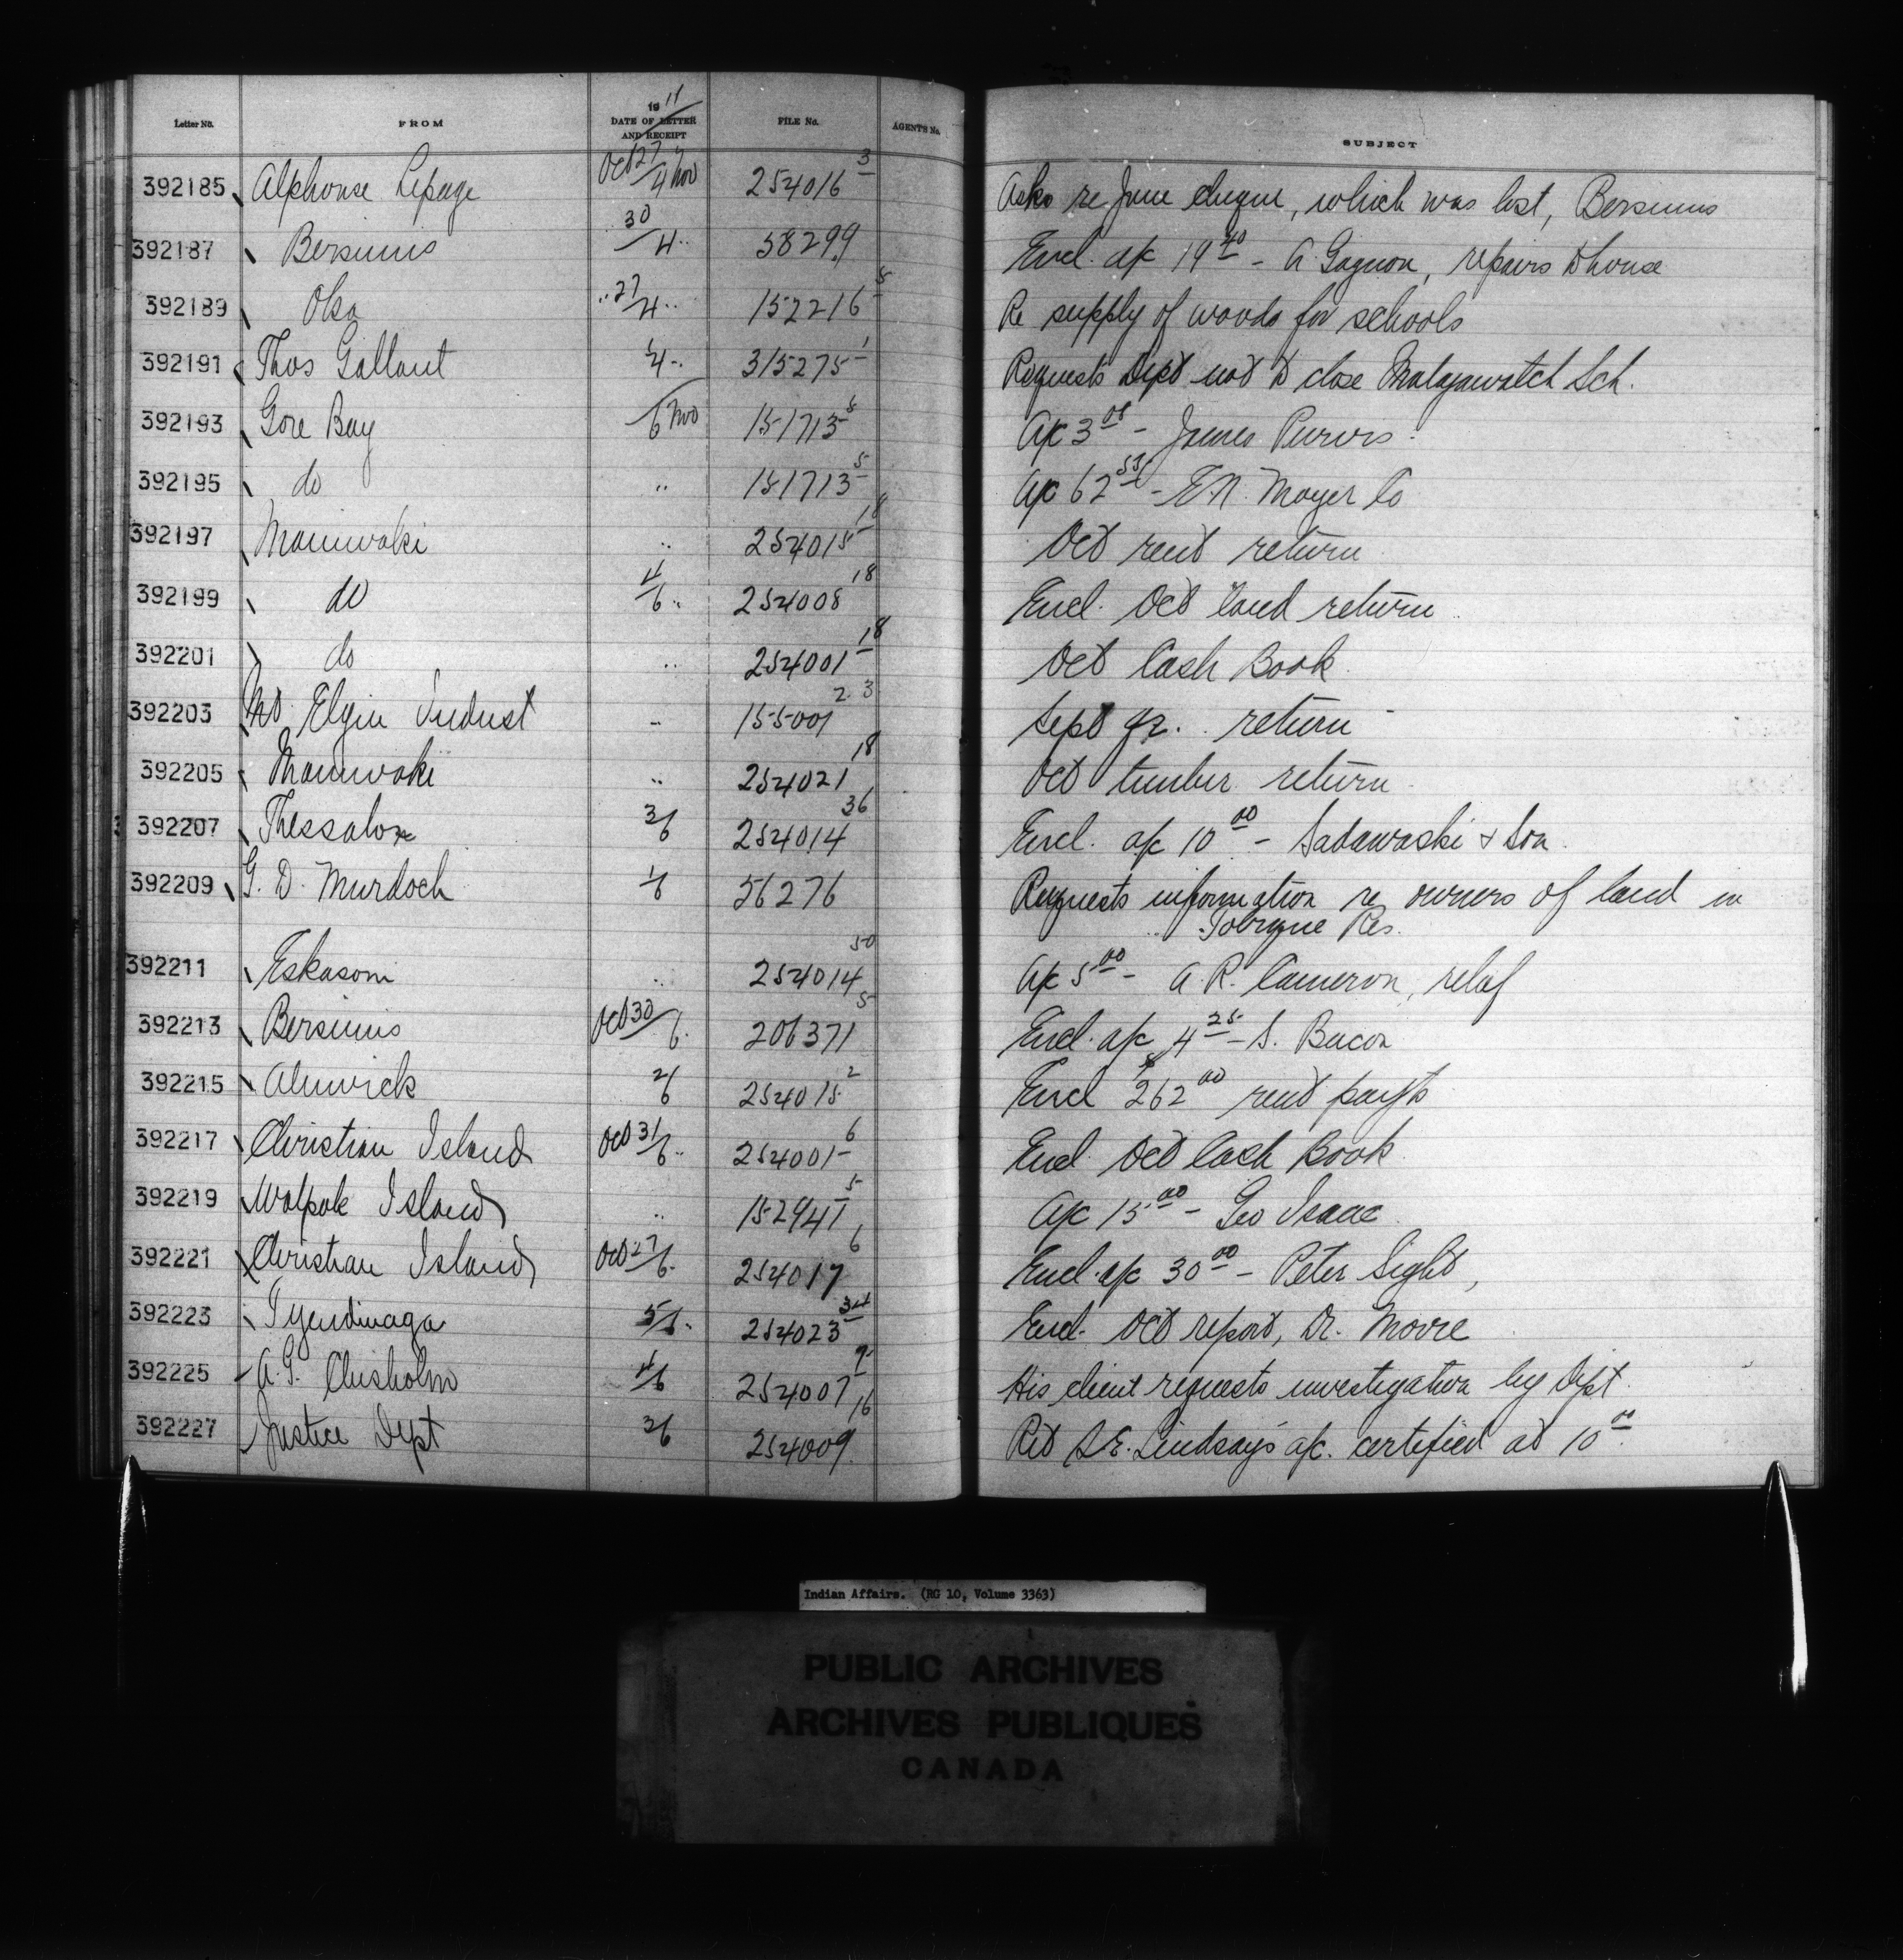 Letter No. FROM 1911 DATE OF LETTER AND RECEIPT FILE No. AGENTS No. SUBJECT
392185 Alphonse Lepage Oct 27/4 Nov 254016 3 Asks re June cheque, which was lost, Bersimis
392187 Bersimis 30/4 " 58299 Encl. a/c 19 40 - A. Gagnon, repairs to house
392189 Oka " 27/4 " 152216 5 Re supply of woods for schools
392191 Thos Gallant 1/4 " 315275 1 Requests Dept not to close Malagawatch Sch.
392193 Gore Bay /6 Nov 151713 5 A/c 3 00 - James Purvis
392195 do " 151713 5 A/c 62 55 - E.N. Moyer Co
392197 Maniwaki " 254015 18 Oct rent return
392199 do 4/6 " 254008 18 Encl. Oct land return
392201 do " 254001 18 Oct Cash Book
392203 Mt Elgin Indust " 155001 23 Sept qr. return
392205 Maniwaki " 254021 18 Oct timber return
392207 Thessalon 3/6 254014 36 Encl. a/c 10 00 - Sadawaski & Son
392209 G. D. Murdoch 1/6 56276 Requests information re owners of land in
" Tobique Res.
392211 Eskasoni " 254014 50 A/c 5 00 - A. R. Cameron, relief
392213 Bersimis Oct 30/6 206371 5 Encl. a/c 4 25 - S. Bacon
392215 Alnwick 2/6 254015 2 Encl $262 00 rent payts
392217 Christian Island Oct 31/6 " 254001 6 Encl Oct Cash Book
392219 Walpole Island " 152941 5 A/c 15 00 - Geo Isaac
392221 Christian Island Oct 27/6 " 254017 6 Encl. a/c 30 00 - Peter Sight,
392223 Tyendinaga 5/6 " 254023 34 Encl. Oct report, Dr. Moore
392225 A. G. Chisholm 4/6 254007 9 His client requests investigation by Dept.
392227 Justice Dept 3/6 254009 16 Ret S.E. Lindsay's a/c. certified at 10 00
Indian Affairs. (RG 10, Volume 3363)
PUBLIC ARCHIVES
ARCHIVES PUBLIQUES
CANADA